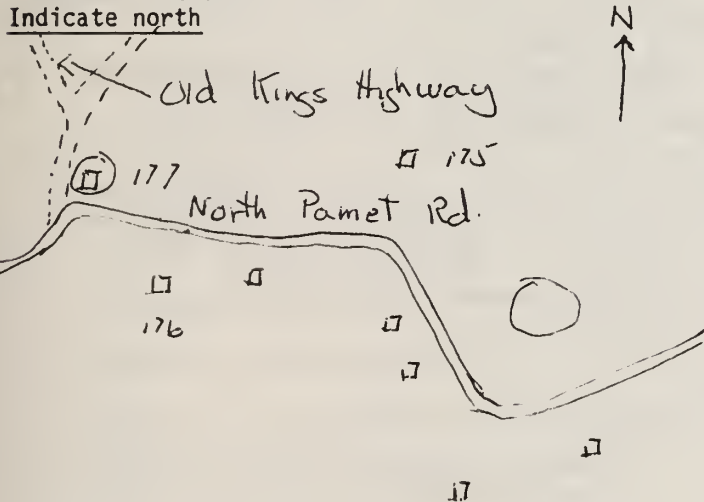 Indicate north
N
Old Kings Highway
177
175
North Pamet Rd.
176